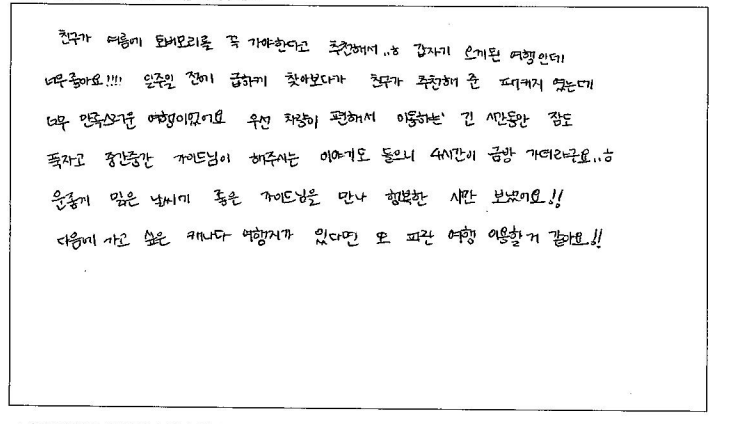 친구가 여름에 토버모리를 꼭 가야한다고 추천해서..ㅎ 갑자기 오게된 여행인데
너무좋아요!!!! 일주일 전에 급하게 찾아보다가 친구가 추천해 준 패키지 였는데
너무 만족스러운 여행이었어요 우선 차량이 편해서 이동하는 긴 시간동안 잠도
푹자고 중간중간 가이드님이 해주시는 이야기도 들으니 4시간이 금방 가더라구요..ㅎ
운좋게 맑은 날씨에 좋은 가이드님을 만나 행복한 시간 보냈어요!!
다음에 가고 싶은 캐나다 여행지가 있다면 또 파란 여행 이용할거 같아요!!